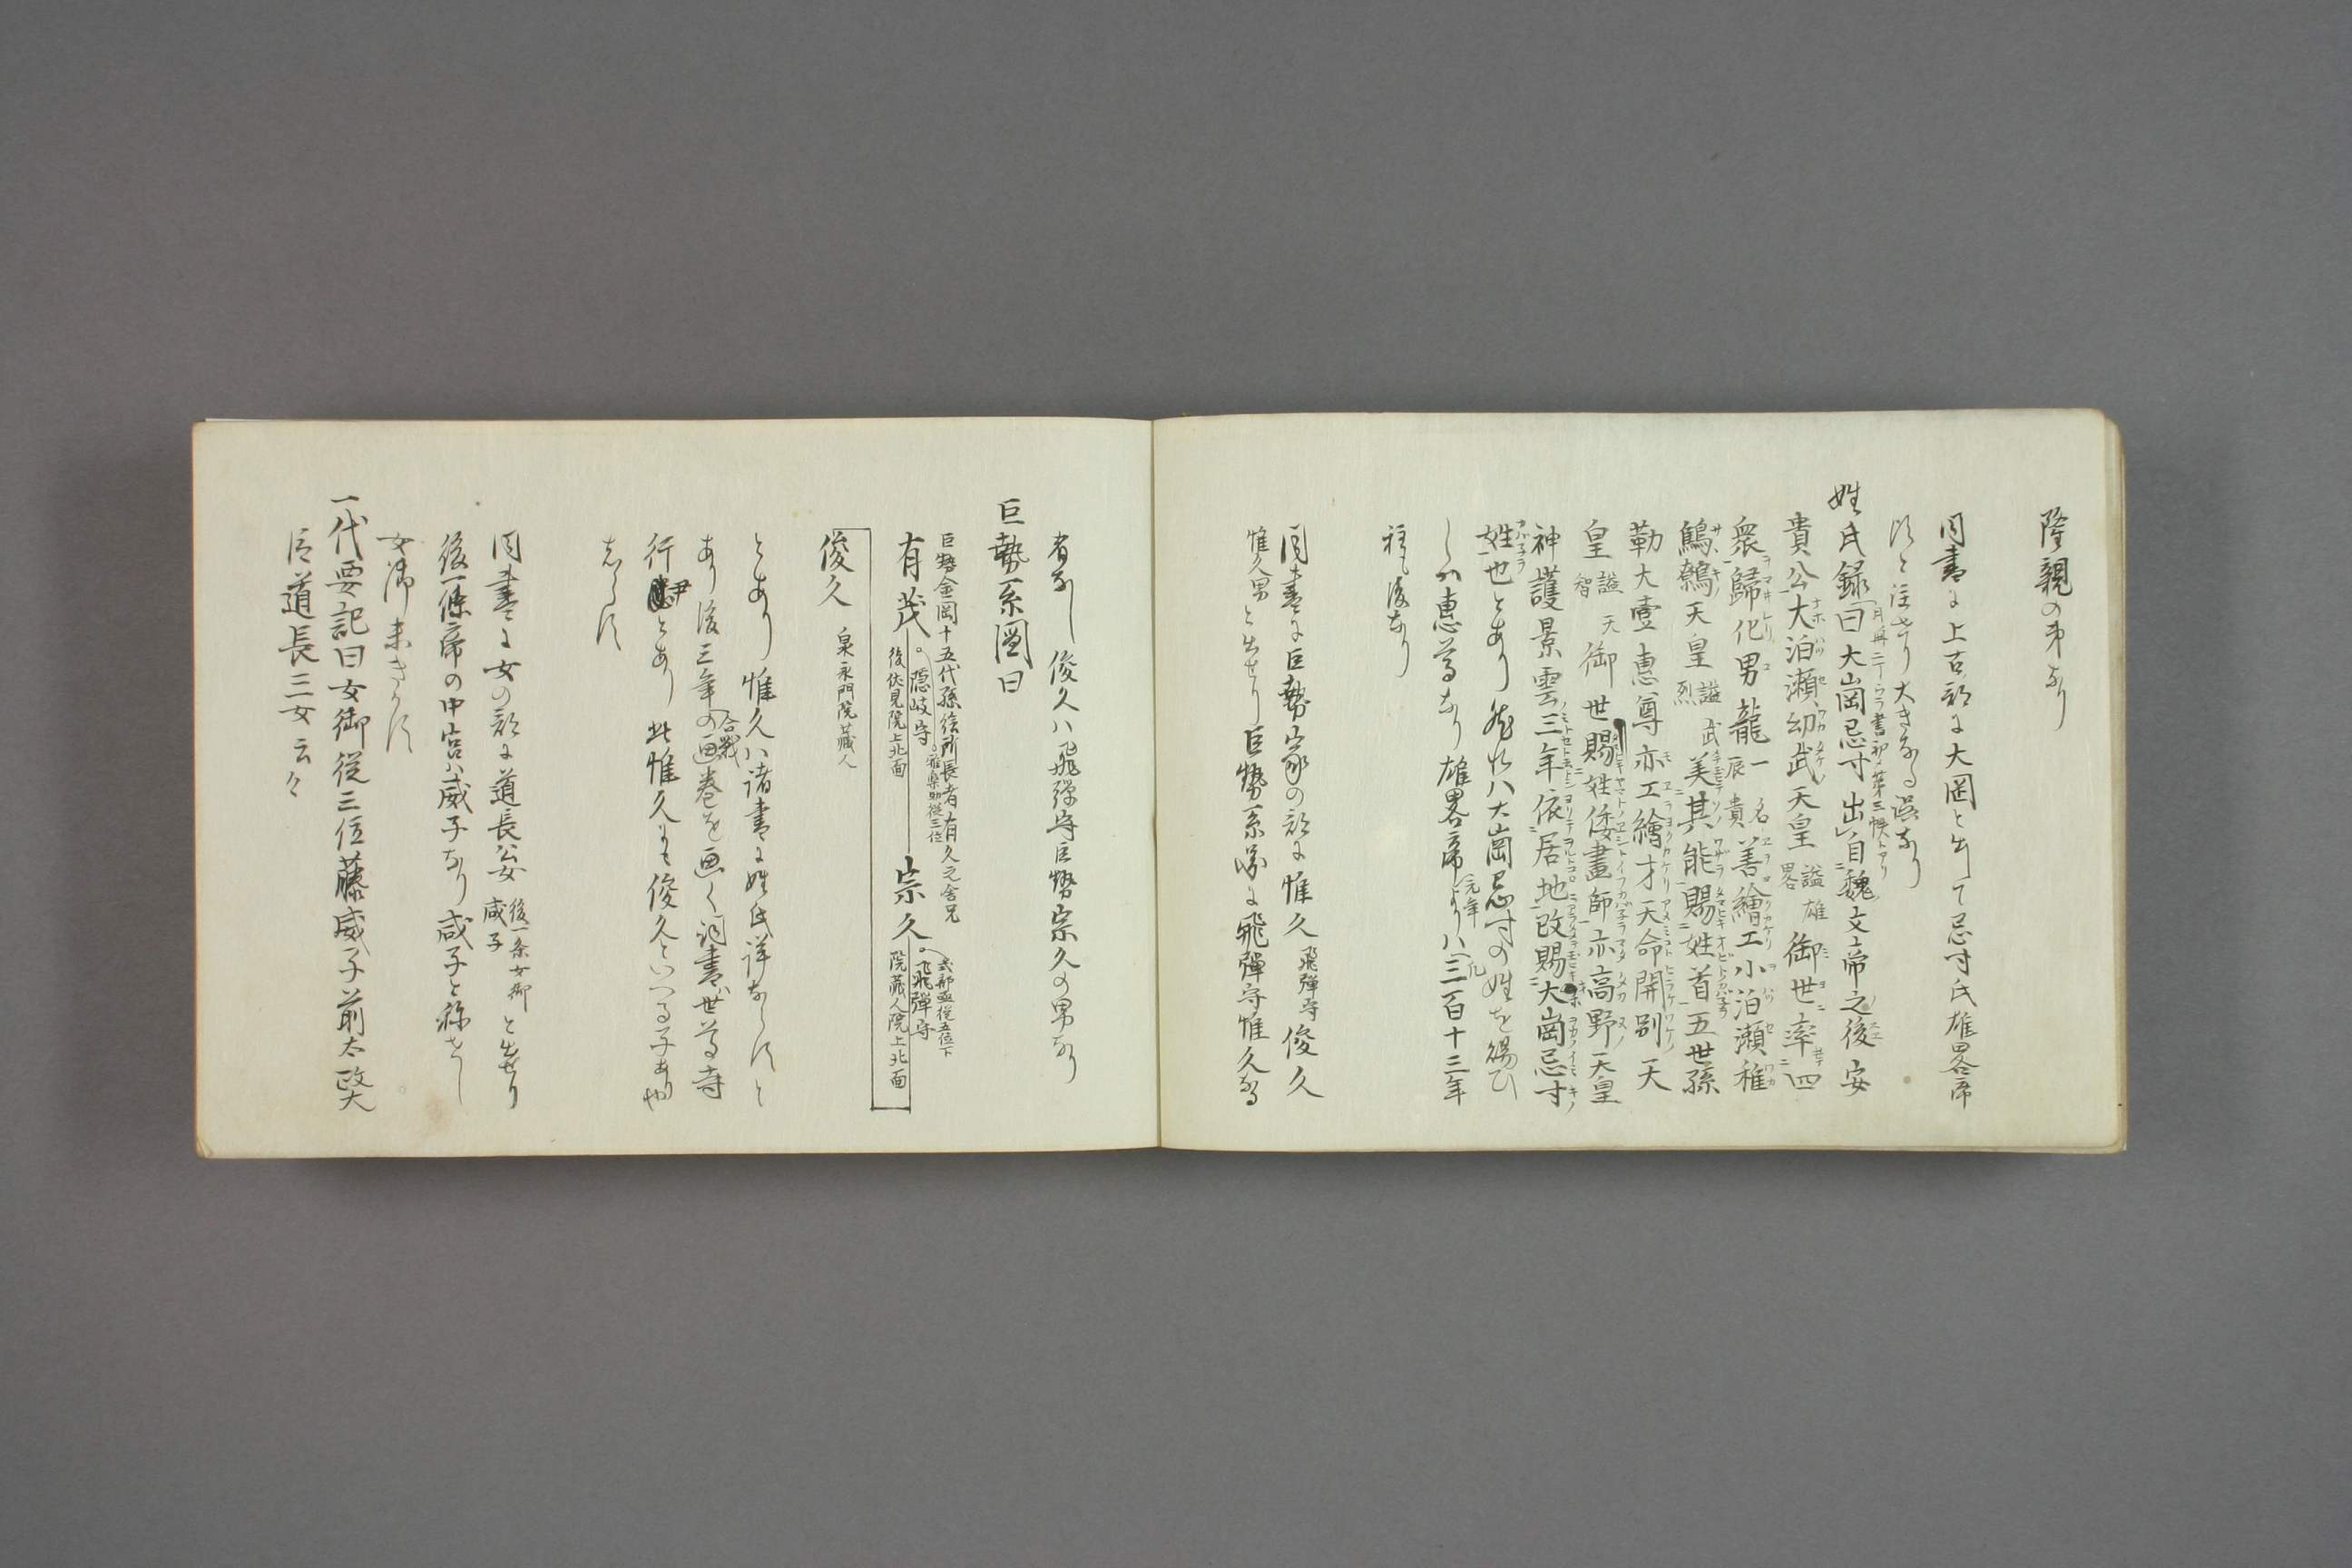 隆親の弟なり
同書に上古部に大岡と出て忌寸氏雄畧帝
比と注せり大きなる誤なり
姓氏録曰大崗忌寸出自魏文帝之後安
貴公大泊瀬幼武天皇 謚雄畧 御世率四
衆歸化男龍一名辰貴善繪工小泊瀬稚
鷦鷯天皇 謚武烈 美其能賜姓首五世孫
勤大壹惠尊亦工繪才天命開別天
皇 謚天智 御世賜姓倭畫師亦高野天皇
神護景雲三年依居地改賜大崗忌寸
姓也とあり 然れハ大崗忌寸の姓を得ひ
しハ惠尊なり 雄畧帝元年よりハ凡三百十三年
程も後なり
同書に巨勢家の部に惟久 飛彈守 俊久
惟久男 と出せり巨勢系圖に飛彈守惟久なる
者なし 俊久ハ飛彈守巨勢宗久の男なり
巨勢系圖曰
巨勢金岡十五代孫繪所長者有久之舎兄
有茂 隠岐守 雅樂助從三位 後伏見院上北面
宗久 式部丞從五位下 飛彈守 院藏人院上北面
俊久 泉永門院藏人
とあり 惟久ハ諸書に姓氏詳ならすと
あり後三年の合戰画巻を画く詞書ハ世尊寺
行尹とあり 此惟久にも俊久といへる子あり也
しらす
同書に女の部に道長公女 後一条女御 咸子 と出せり
後一條帝の中宮ハ威子なり咸子と称せし
女御未きかす
一代要記曰女御從三位藤威子前太政大
臣道長三女云々